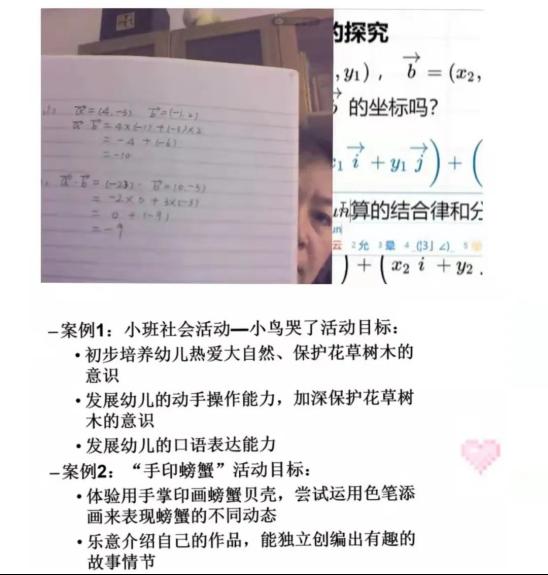 的探究
, y₁), b⃗ = (x₂,
b⃗ 的坐标吗?
x₁ i⃗ + y₁ j⃗ ) + (
算的结合律和分
un
云 2允 3晕 4_(:3」∠)_ 5
) + ( x₂ i + y₂
a⃗=(4,-3) b⃗=(-1,2)
a⃗·b⃗=4×(-1)+(-3)×2
=-4+(-6)
=-10
a⃗·b⃗=(-23)· b⃗=(0,-3)
=-2×0+3×(-3)
= 0+(-9)
=-9
–案例1:小班社会活动—小鸟哭了活动目标:
•初步培养幼儿热爱大自然、保护花草树木的
意识
•发展幼儿的动手操作能力,加深保护花草树
木的意识
•发展幼儿的口语表达能力
–案例2:“手印螃蟹”活动目标:
•体验用手掌印画螃蟹贝壳,尝试运用色笔添
画来表现螃蟹的不同动态
•乐意介绍自己的作品,能独立创编出有趣的
故事情节